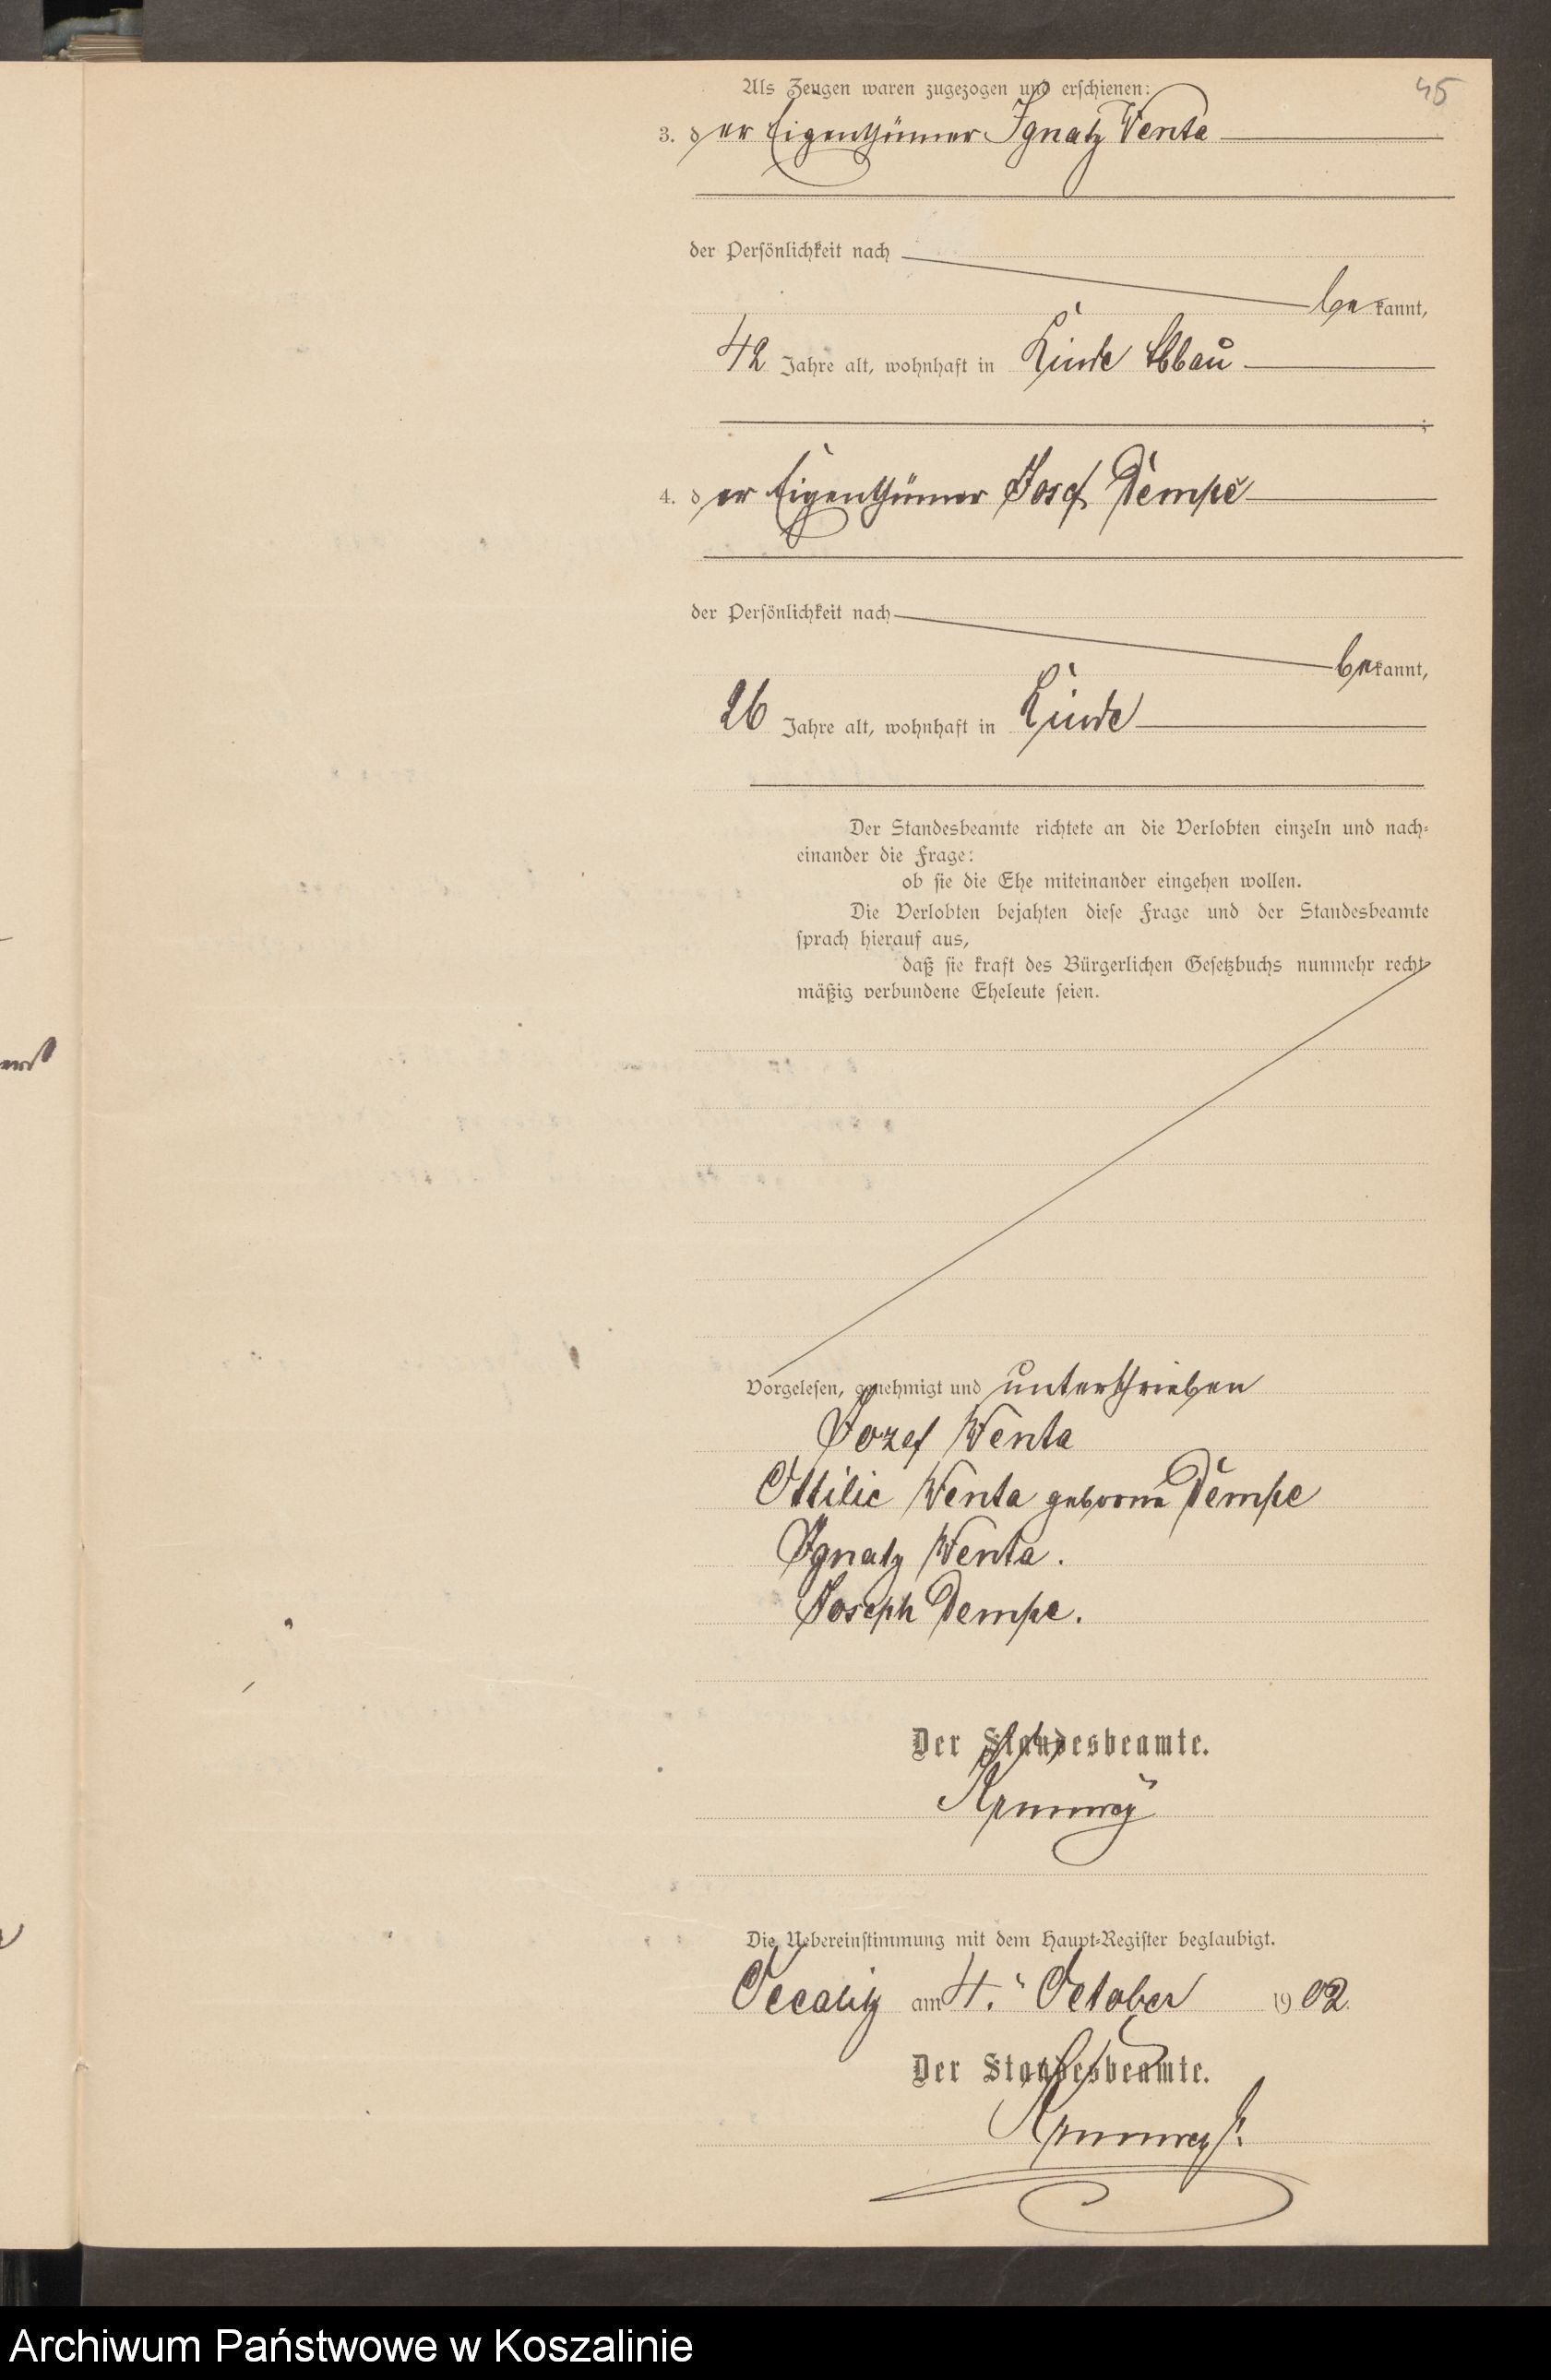 45
Als Zeugen waren zugezogen und erschienen:
3. der Eigenthümer Ignatz Wenta
der Persönlichkeit nach
bekannt,
42 Jahre alt, wohnhaft in Linde Abbau
;
4. der Eigenthümer Josef Dempe
der Persönlichkeit nach
bekannt,
26 Jahre alt, wohnhaft in Linde
Der Standesbeamte richtete an die Verlobten einzeln und nach-
einander die Frage:
ob sie die Ehe miteinander eingehen wollen.
Die Verlobten bejahten diese Frage und der Standesbeamte
sprach hierauf aus,
daß sie kraft des Bürgerlichen Gesetzbuchs nunmehr recht-
mäßig verbundene Eheleute seien.
Vorgelesen, genehmigt und unterschrieben
Jozef Wenta
Ottilie Wenta geborne Dempe
Ignatz Wenta.
Joseph Dempe.
Der Standesbeamte.
Die Uebereinstimmung mit dem Haupt-Register beglaubigt.
am 4. October 1902.
Der Standesbeamte.
Archiwum Państwowe w Koszalinie